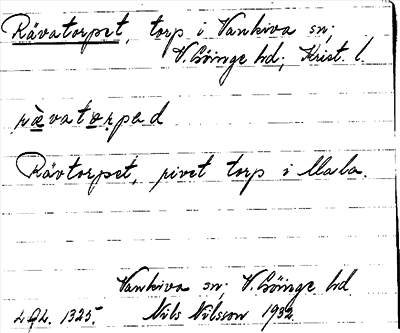 Rävatorpet, torp i Vankiva sn;
V. Göinge hd; Krist. l.
rævatɒrpad
Rävtorpet, rivet torp i Mala.
Vankiva sn; V. Göinge hd.
1325. Nils Nilsson 1932.